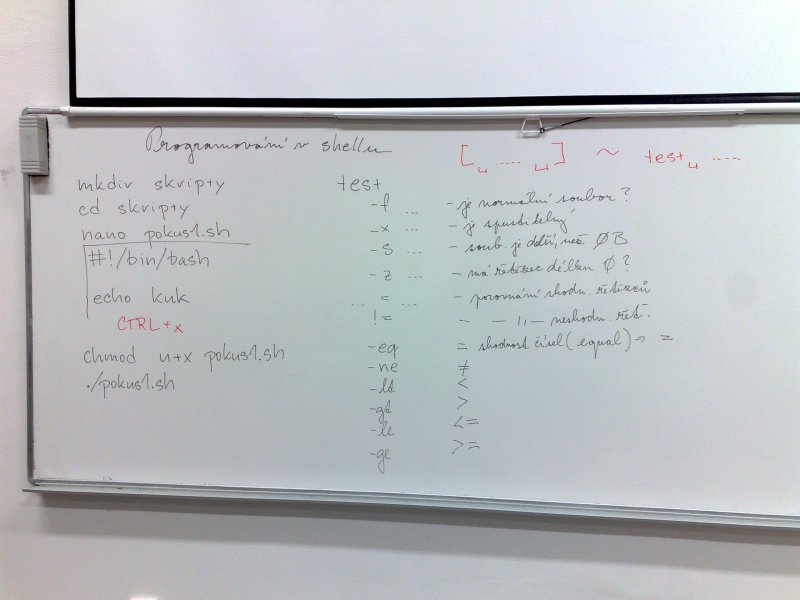 Programování v shellu
[␣ ..... ␣] ~ test␣ .....
mkdir skripty
cd skripty
nano pokus1.sh
#!/bin/bash
echo kuk
CTRL+x
chmod u+x pokus1.sh
./pokus1.sh
test
-f ... - je normální soubor?
-x ... - je spustitelný
-s ... - soub. je delší, než ØB
-z ... - má řetězec délku Ø?
... = ... - porovnání shodn. řetězců
!= - — 〃 — neshodn. řet.
-eq = shodnost čísel (equal) → =
-ne ≠
-lt <
-gt >
-le <=
-ge >=